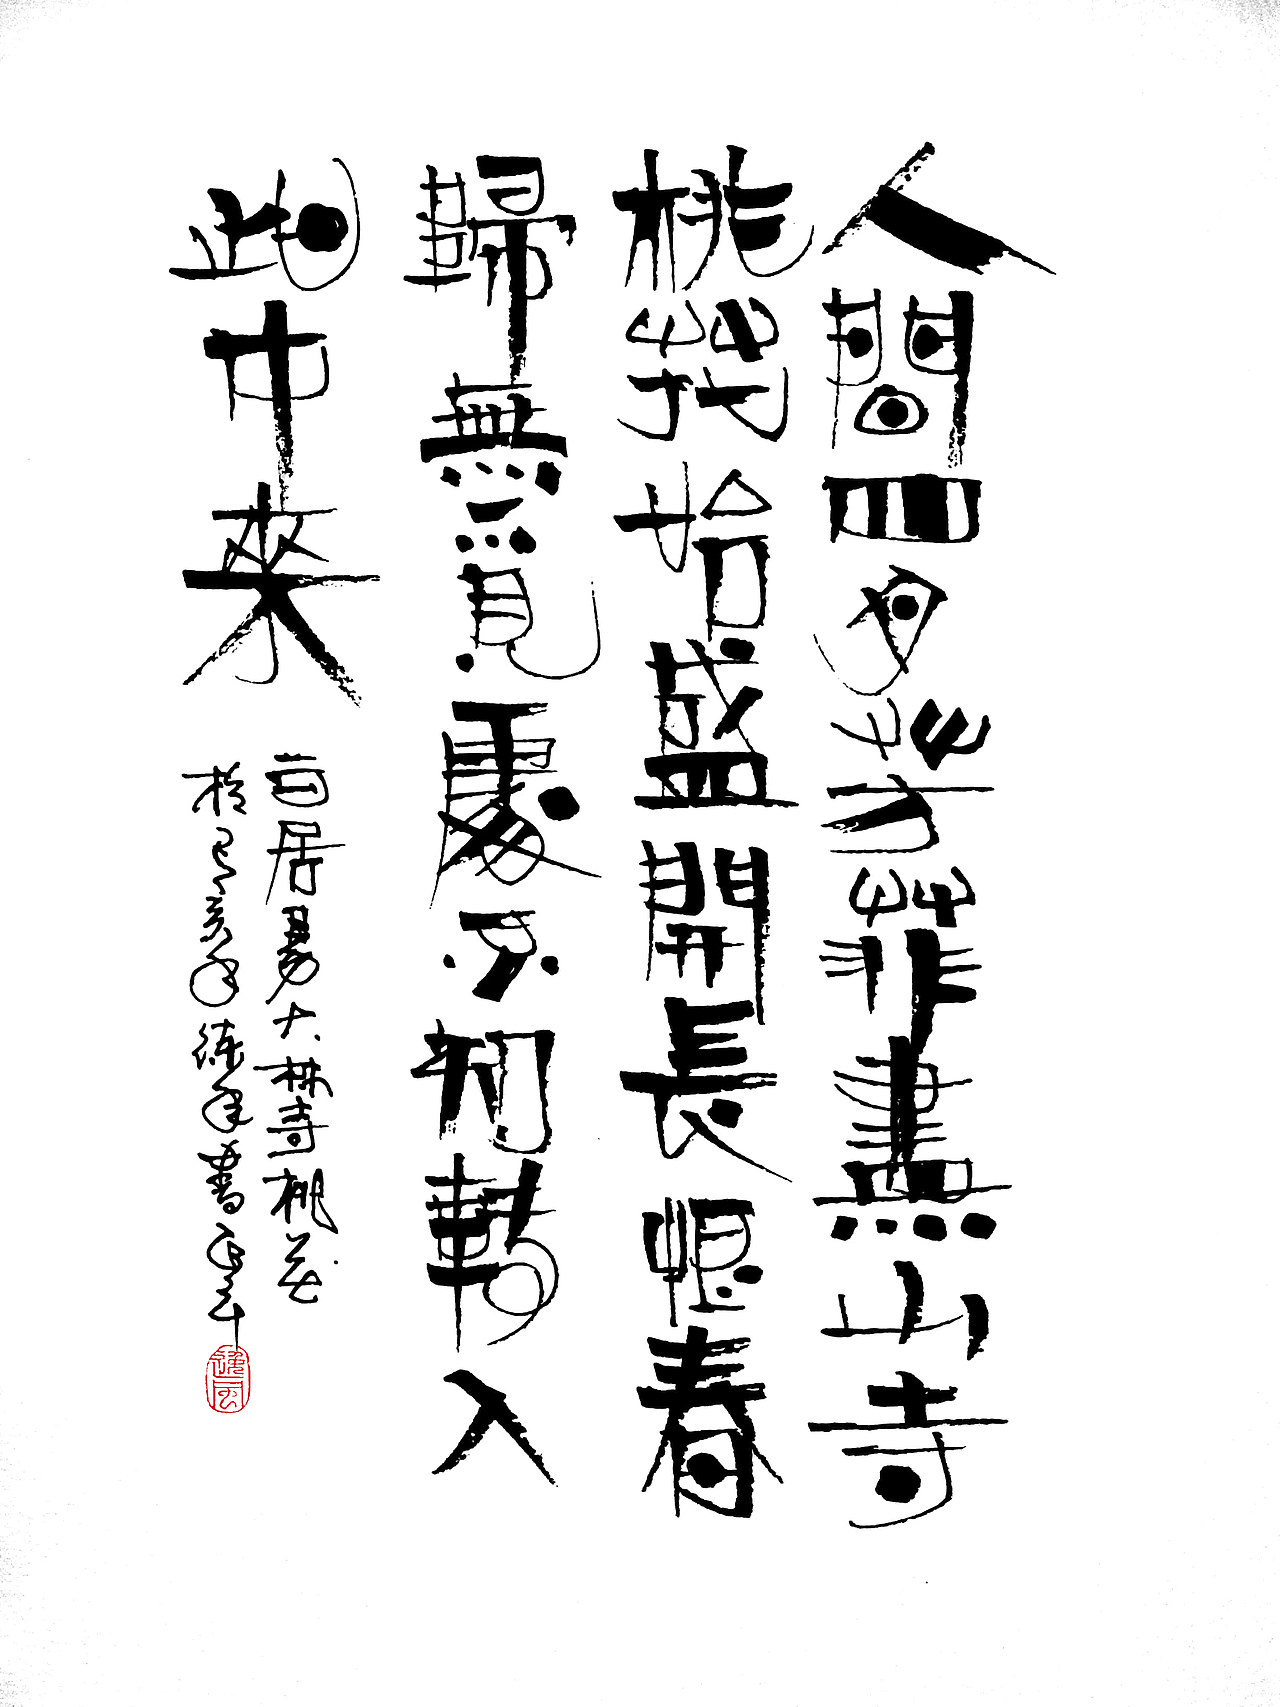 人間四月芳菲盡山寺
桃花始盛開長恨春
歸無覓處不知轉入
此中來
白居易大林寺桃花
於己亥年